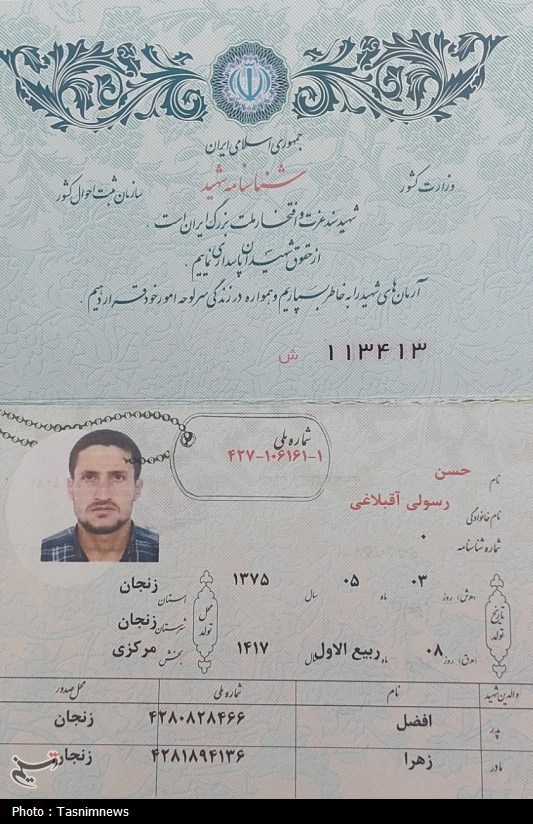 جمهوری اسلامی ایران
وزارت کشور
شناسنامه شهید
سازمان ثبت احوال کشور
شهید سند عزت و افتخار ملت بزرگ ایران است .
از حقوق شهیدان پاسداری نماییم .
آرمان‌های شهید را به خاطر بسپاریم و همواره در زندگی سرلوحه امور خود قرار دهیم .
ش ۱۱۳۴۱۳
شماره ملی
۴۲۷-۱۰۶۱۶۱-۱
نام حسن
نام خانوادگی رسولی آقبلاغی
شماره شناسنامه ۰
تاریخ تولد
(ه.ش) روز ۰۳ ماه ۰۵ سال ۱۳۷۵
(ه.ق) روز ۰۸ ماه ربیع الاول سال ۱۴۱۷
محل تولد
استان زنجان
شهرستان زنجان
بخش مرکزی
والدین شهید نام شماره ملی محل صدور
پدر افضل ۴۲۸۰۸۲۸۴۶۶ زنجان
مادر زهرا ۴۲۸۱۸۹۴۱۳۶ زنجان
تسنیم
Photo : Tasnimnews